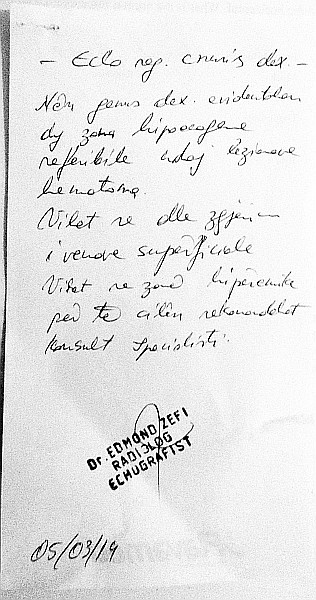 - Echo reg. cruris dex. -
Nën genus dex. evidentohen
dy zona hipoecogene
referibile ndaj lezioneve
hematoma.
Vihet re dhe zgjerim
i venave superficiale
Vihet re zonë hiperemike
për të cilën rekomandohet
konsult specialisti.
Dr. EDMOND ZEFI
RADIOLOG
ECHOGRAFIST
05/03/19